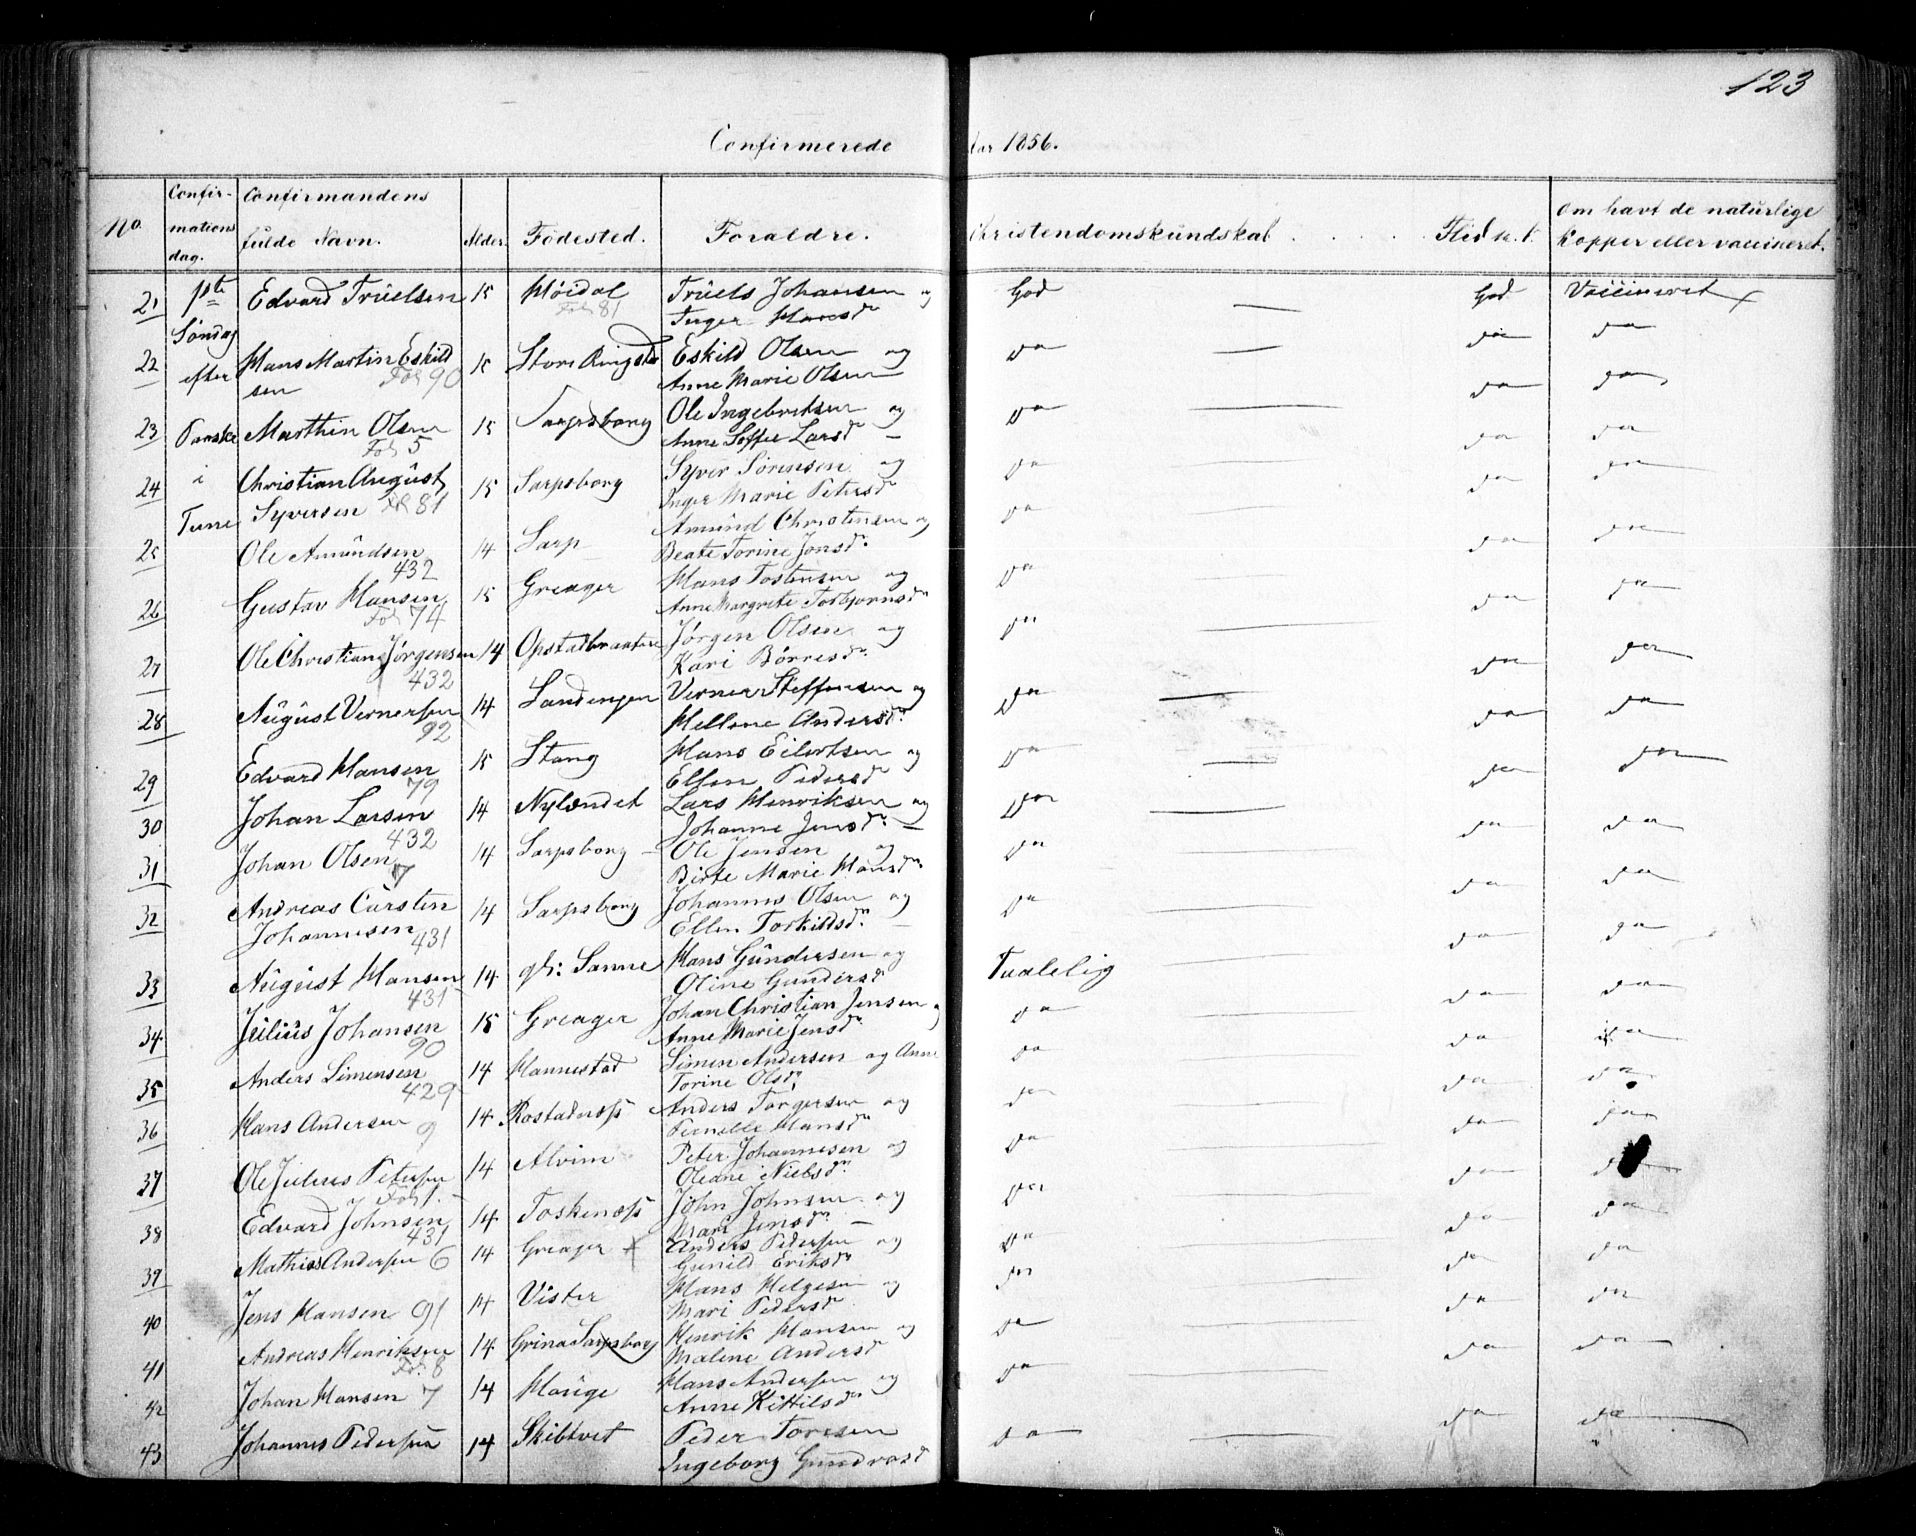 123
Confirmerede Aar 1856.
No. Confirmations dag. Confirmandens fulde Navn. Alder. Fødested. Foraldre. Christendomskundskab . . . . . Flid m. v. Om havt de naturlige Kopper eller vaccineret.
21 1ste Edvard Truelsen 15 Høidal Truels Johansen og God — God Vaccineret
Fol 81 Inger Hansdr
Søndag
22 Hans Martin Eskild 15 Store Ringstad Eskild Olsen og do — do do
efter sen Fol 90 Anne Marie Olsen
23 Paaske Marthin Olsen 15 Sarpsborg Ole Ingebretsen og do — do do
Fol 5 Anne Soffie Larsdr —
24 i Christian August 15 Sarpsborg Syver Sørensen og do — do do
Tune Syversen Fol 81 Inger Marie Petersdr
25 Ole Amundsen 14 Sarp Amund Christensen og do — do do
432 Beate Torine Jonsdr.
26 Gustav Hansen 15 Greager Hans Tostensen og do — do do
Fol 74 Anne Margrete Torbjørnsdr
27 Ole Christian Jørgensen 14 Opstadbraaten Jørgen Olsen og do — do do
432 Kari Børresdr.
28 August Vernersen 14 Sandengen Verner Steffensen og do — do do
92 Hellene Andersdr.
29 Edvard Hansen 15 Stang Hans Eilertsen og do — do do
79 Ellen Pedersdr
30 Johan Larsen 14 Nylændet Lars Henriksen og do — do do
432 Johanne Jensdr. —
31 Johan Olsen 14 Sarpsborg — Ole Jensen og do — do do
7 Birte Marie Hansdr.
32 Andreas Carsten 14 Sarpsborg Johannes Olsen og do — do do
Johannesen 431 Ellen Torkildsdr. —
33 August Hansen 14 gl: Sanne Hans Gundersen og Taalelig — do do
431 Oline Gundersdr
34 Julius Johansen 15 Greager Johan Christian Jensen og do — do do
90 Anne Marie Jensdr.
35 Anders Simensen 14 Hannestad Simen Andersen og Anne do — do do
429 Torine Olsdr.
36 Hans Andersen 9 14 Rostadnæss Anders Torgersen og do — do do
Pernelle Hansdr
37 Ole Julius Petersen 14 Alvim Peter Johannesen og do — do do
Fol 1. Oleane Nielsdr.
38 Edvard Johnsen 14 Toskenæss John Johnsen og do — do do
431 Mari Jensdr —
39 Mathias Andersen 6 14 Greager Anders Pedersen og do — do do
Gunild Eriksdr
40 Jens Hansen 91 14 Vister Hans Helgesen og do — do do
Mari Pedersdr
41 Andreas Henriksen 14 Grina Sarpsborg Henrik Hansen og do — do do
Fol. 8 Malene Andersdr
42 Johan Hansen 7 14 Hauge Hans Andersen og do — do do
Anne Kittilsdr
43 Johannes Pedersen 14 Skibtvet Peder Toresen do — do do
Ingeborg Gundrosdr